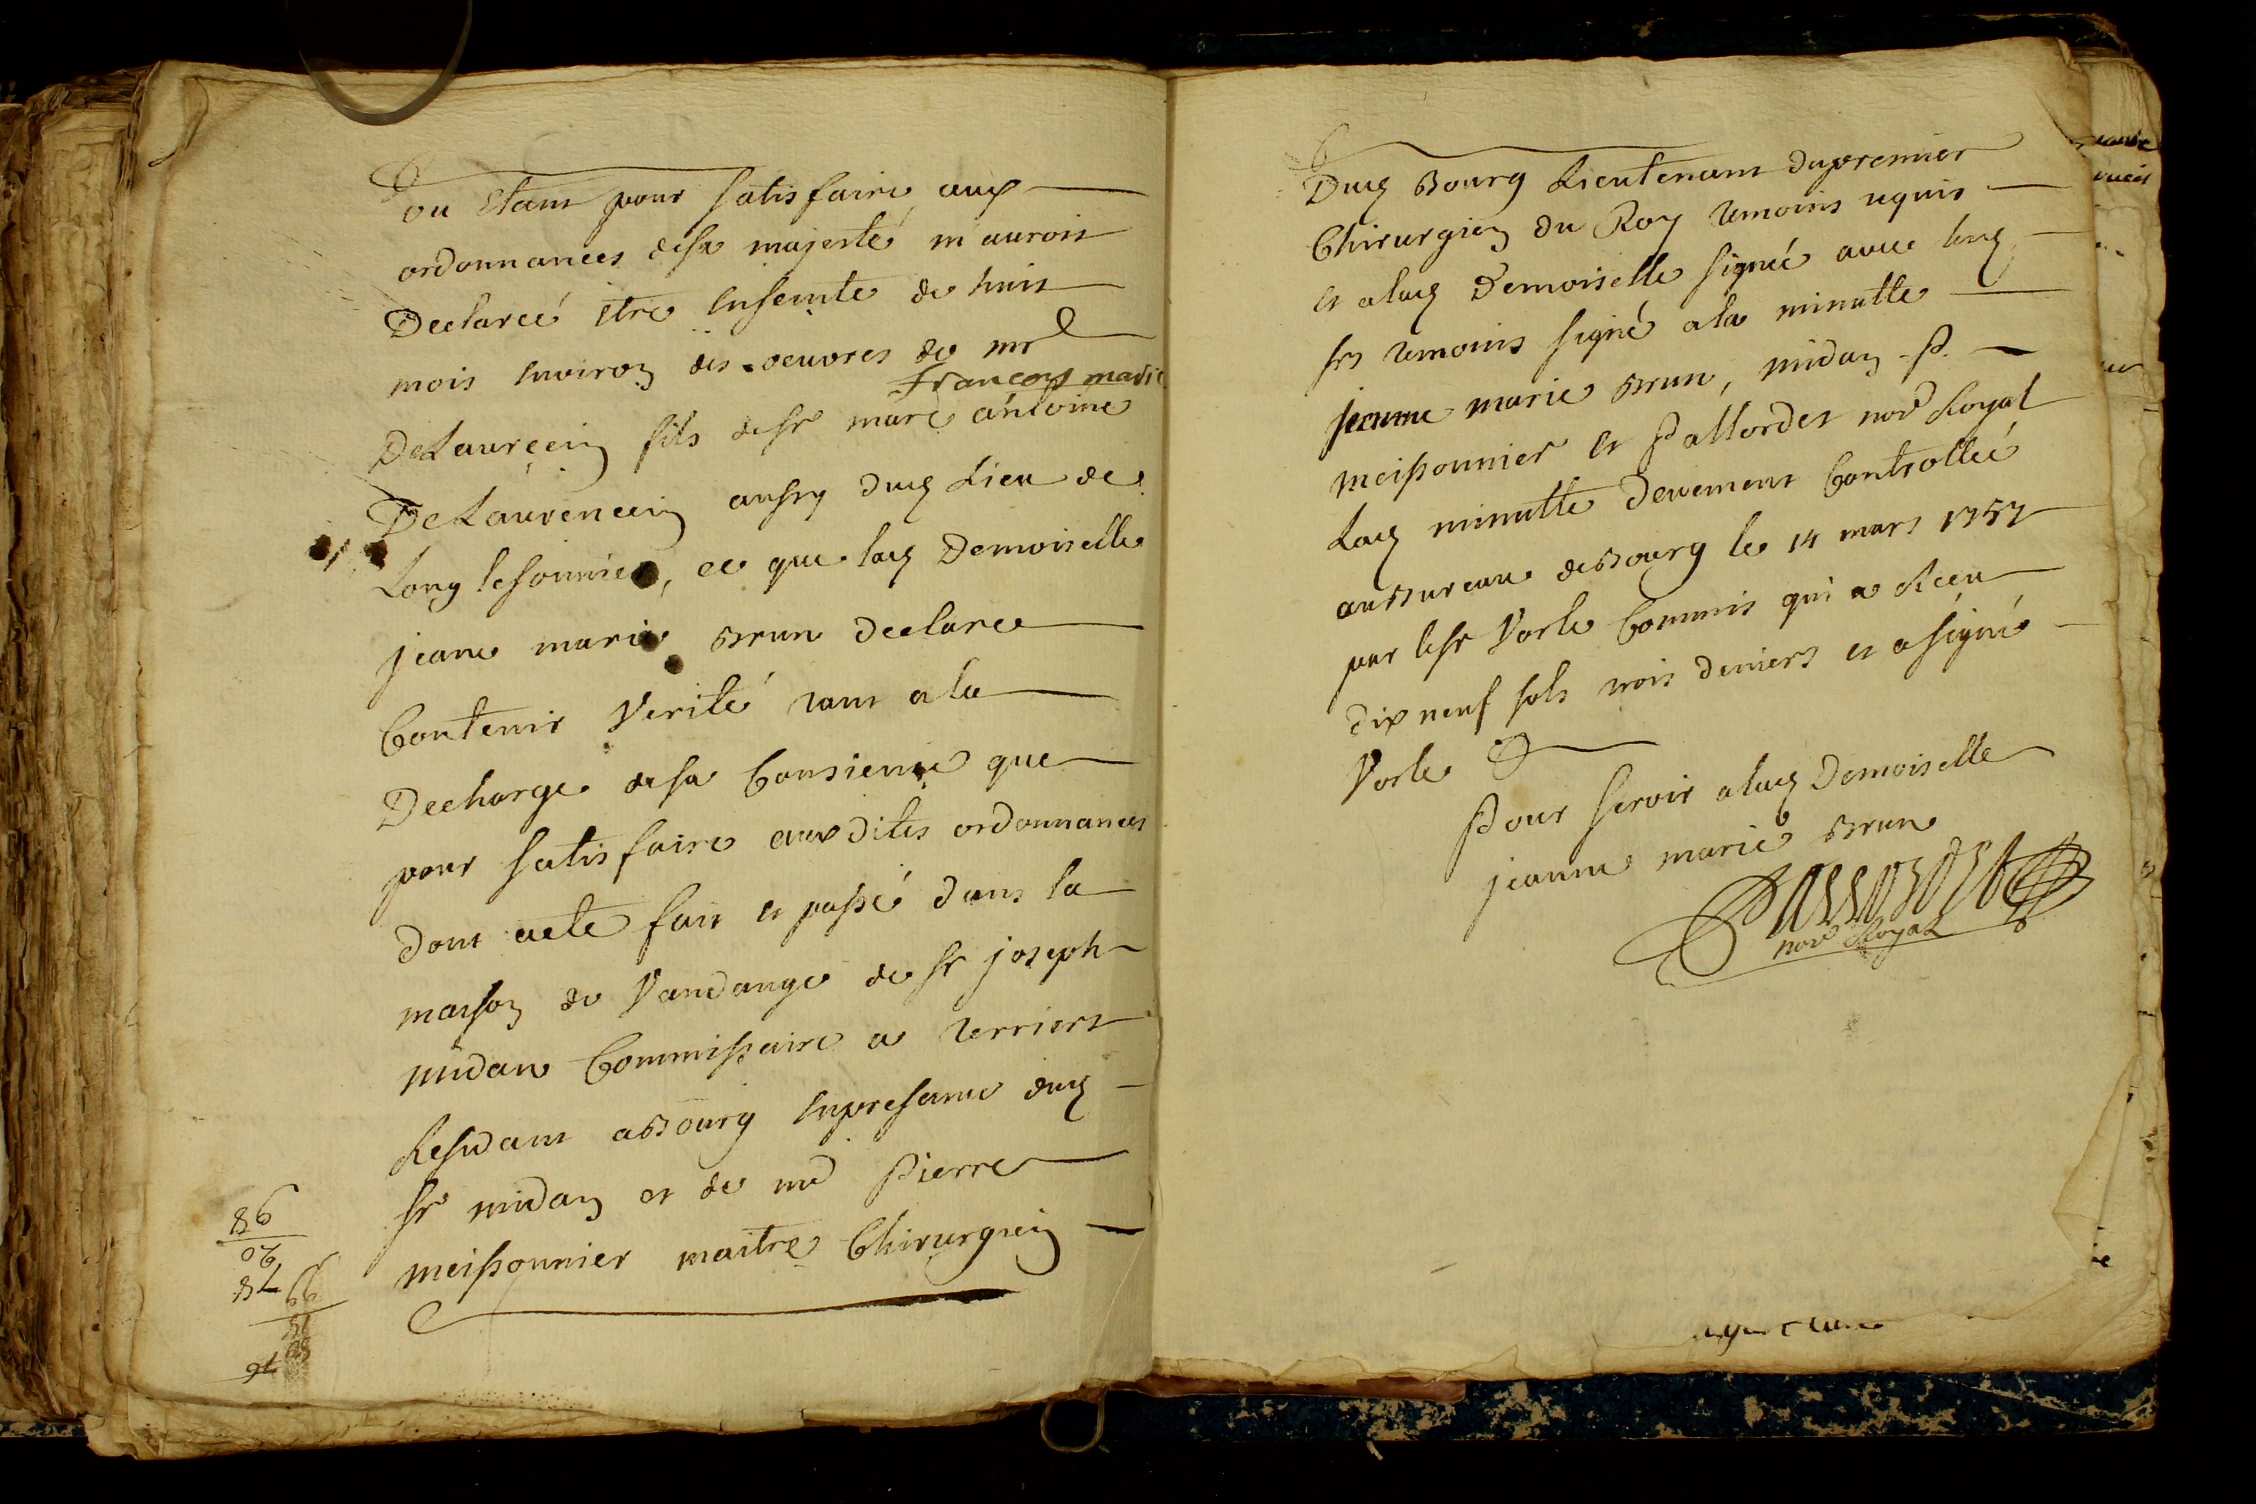 ou Etant pour satisfaire aux
ordonnances de sa majesté m'auroit
Declareé etre Enseinte de huit
mois Environ des oeuvres de mr
François marie
DeLaurecin fils de sr marc antoine
DeLaurencin aussy dud Lieu de
Long lesonnier, ce que lad Demoiselle
jeane marie Brun Declare
Contenir Verité tant a la
Decharge de sa Consience que
pour satisfaire auxdites ordonnances
dont acte fait et passé dans la
maison de Vandange de sr joseph
midan Commissaire a terriers
Residant a Bourg en presence dud
sr midan et de me Pierre
meissonnier maitre Chirurgien
Dud Bourg Lieutenant du premier
Chirurgien du Roy temoins requis
et a lad Demoiselle signée avec led
srs temoins signé a la minutte
jeanne marie Brun, midan P.
meissonnier et Pallordet nore Royal
Lad minutte Deuement Controlleé
au Bureau de Bourg le 14 mars 1757
par le sr Vorle Commis qui a Receu
dix neuf sols trois deniers et a signé
Vorle
Pour servir a lad Demoiselle
jeanne marie Brun
nore Royal